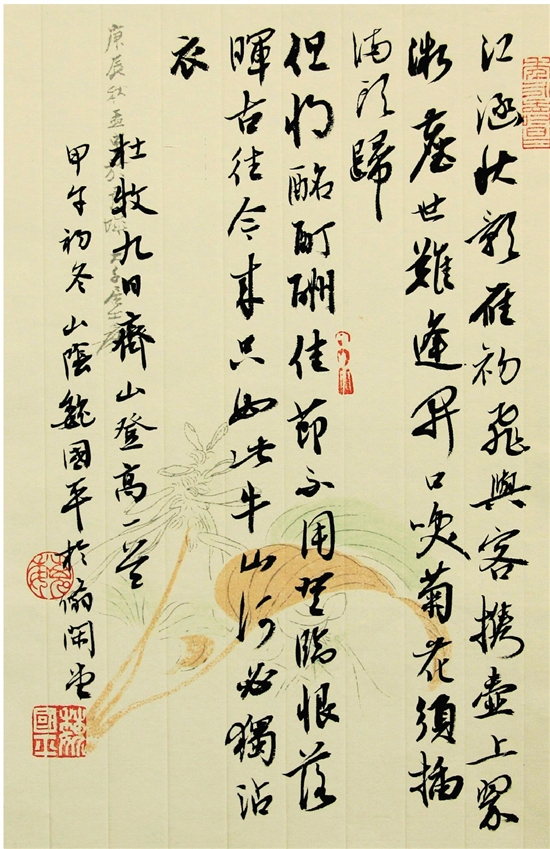 江涵秋影雁初飛與客携壺上翠
微塵世難逢開口咲菊花須插
滿頭歸
但將酩酊酬佳節不用登臨恨落
暉古往今來只如此牛山何必獨沾
衣
杜牧九日齊山登高一首
甲午初冬山陰魏國平於偷閑堂
庚辰秋孟